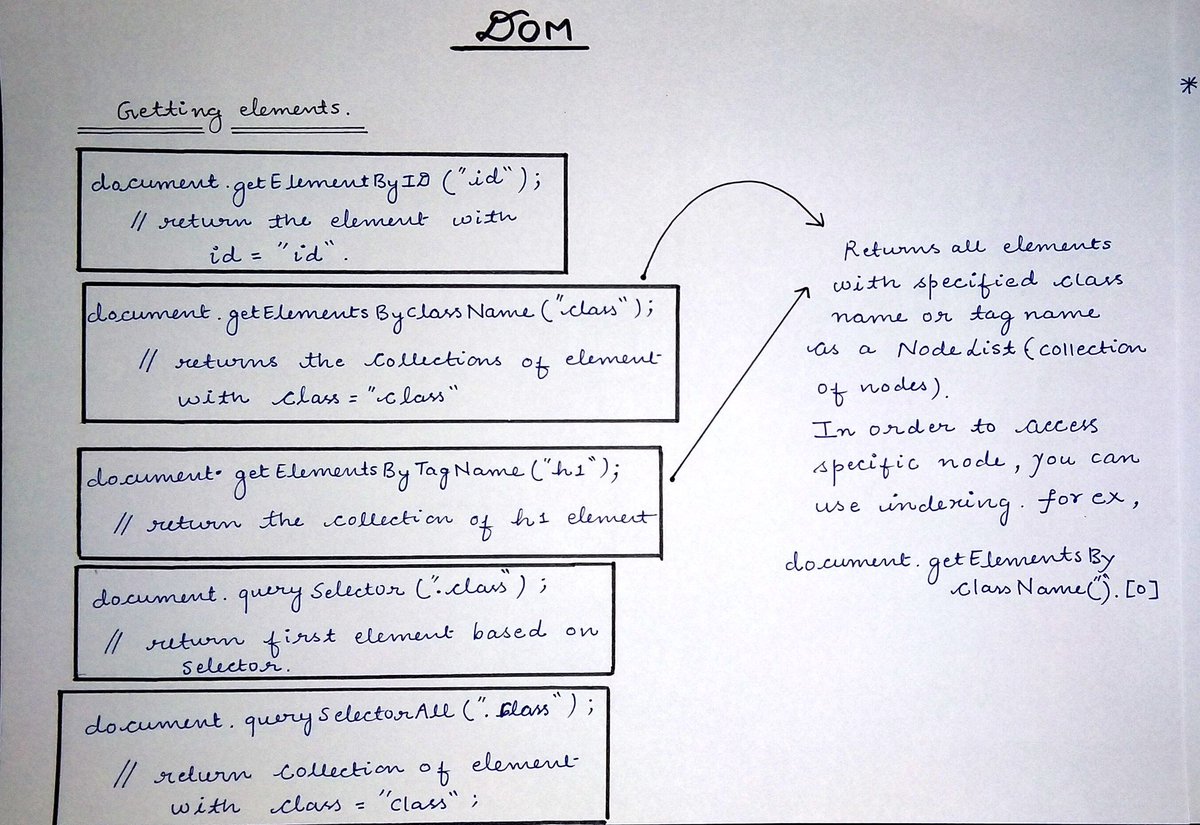 DOM
*
Getting elements.
document.getElementByID ("id");
// return the element with
id = "id".
document.getElementsByClassName ("class");
// returns the collections of element
with class = "class"
document.getElementsByTagName ("h1");
// return the collection of h1 element
document.querySelector (".class");
// return first element based on
selector.
document.querySelectorAll (".class");
// return collection of element
with class = "class";
Returns all elements
with specified class
name or tag name
as a NodeList (collection
of nodes).
In order to access
specific node, you can
use indexing. for ex,
document.getElementsBy
ClassName("").[0]